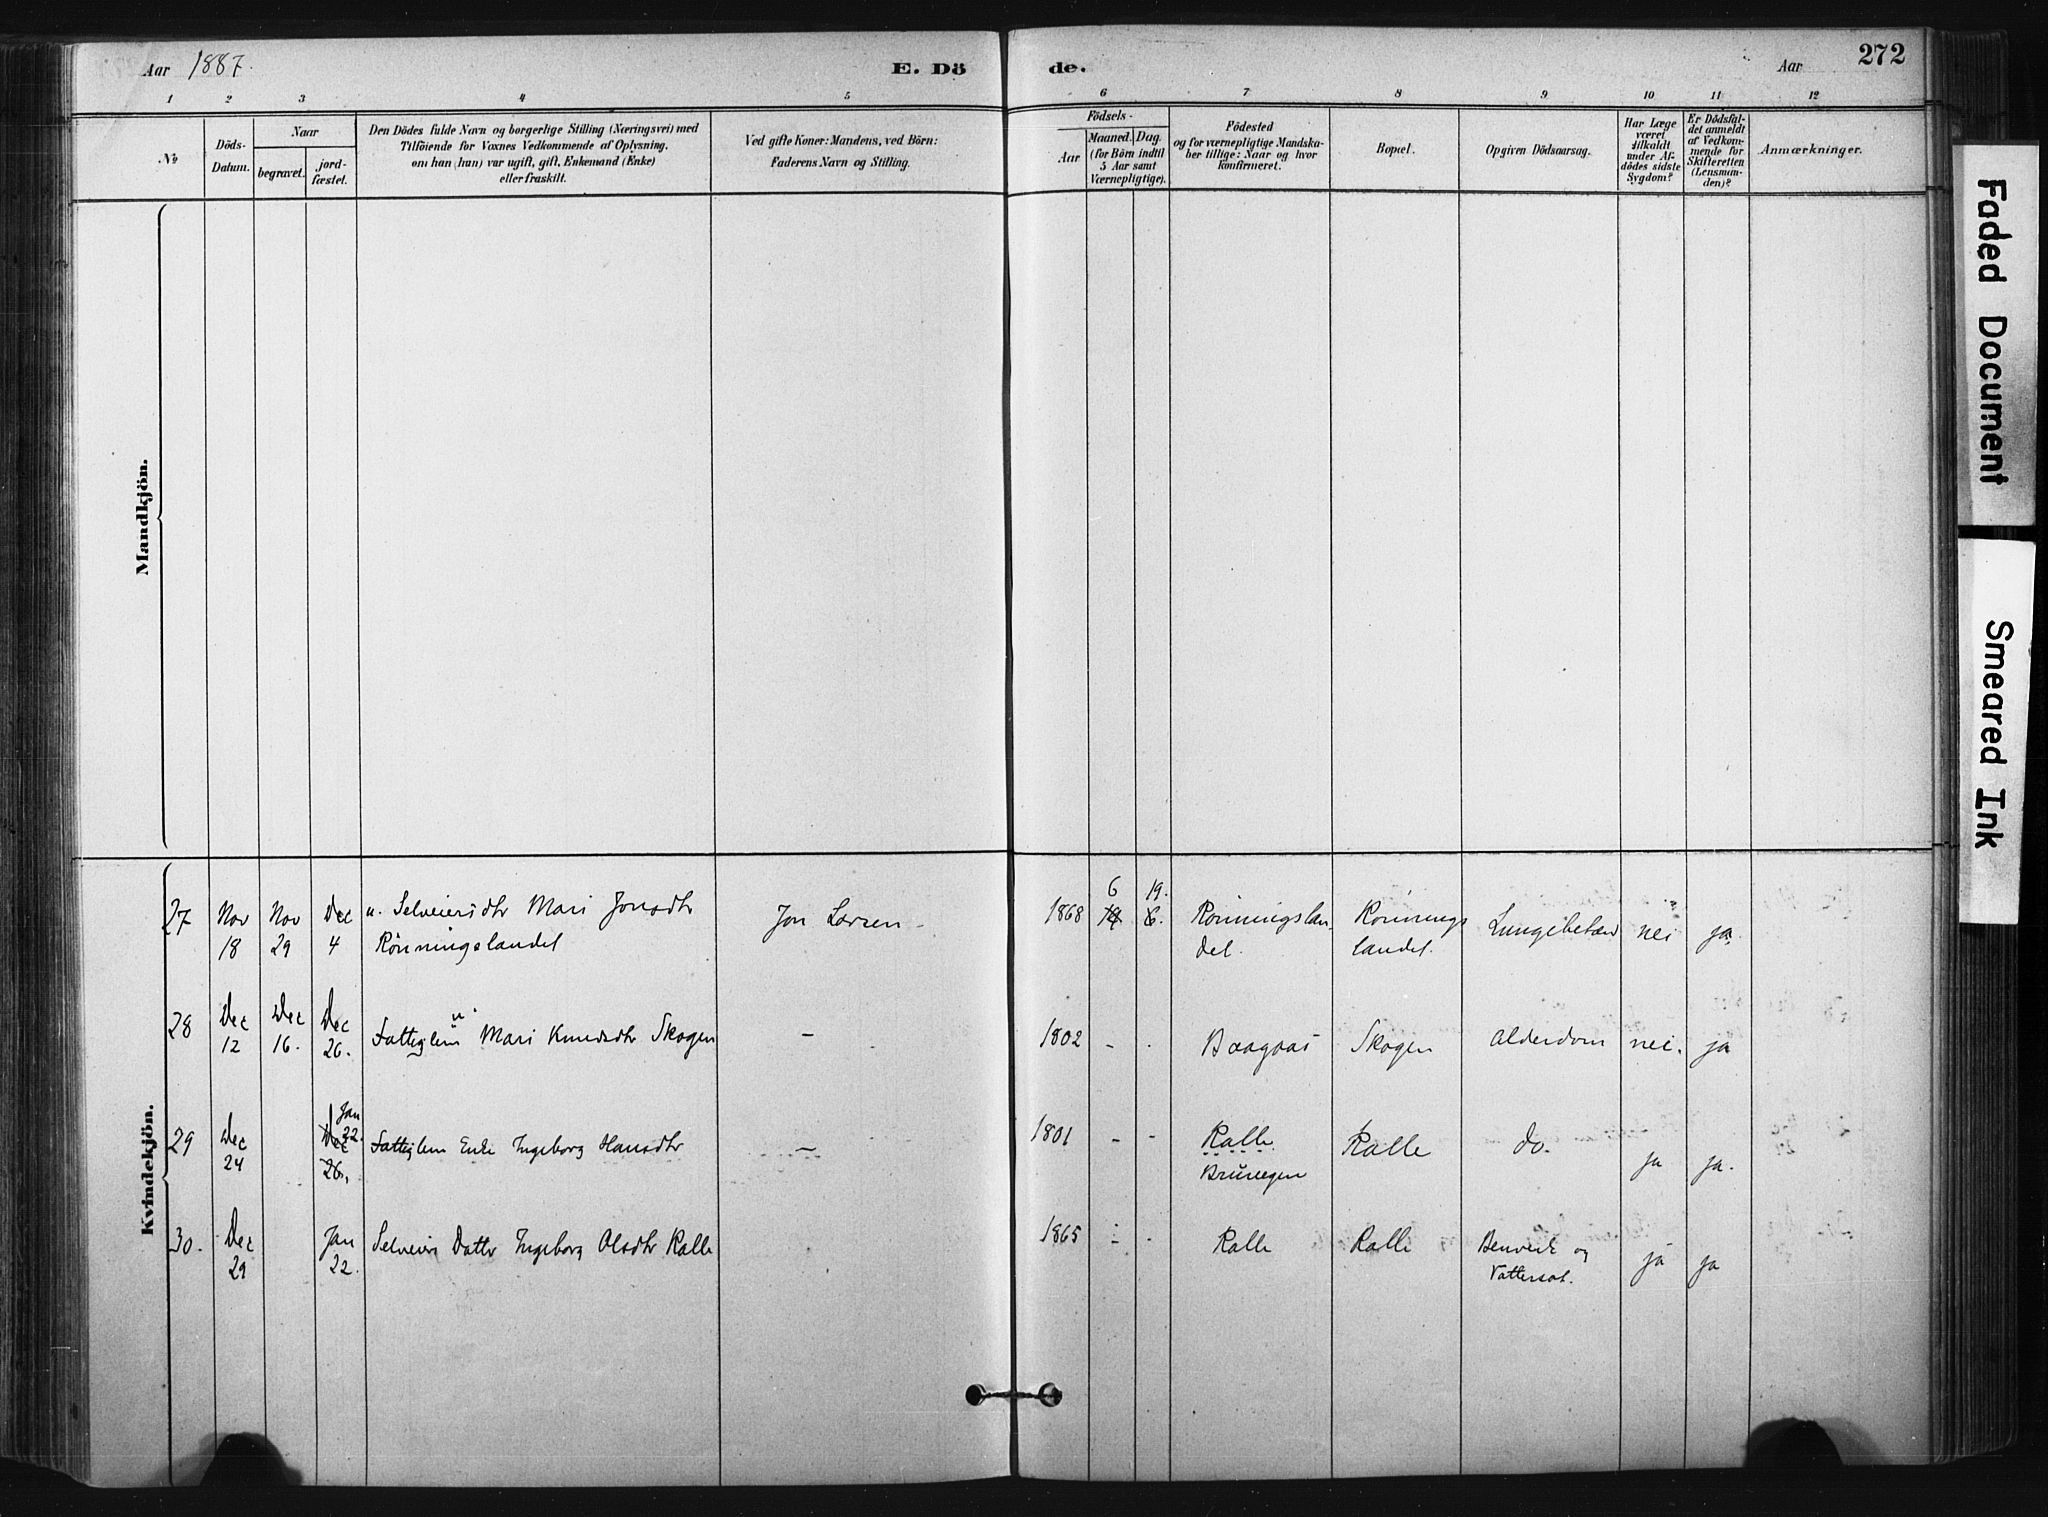 Aar 1887.
E. Dö
de.
Aar
272
1 2 3 4 5 6 7 8 9 10 11 12
No
Döds-
Datum.
Naar
begravet.
jord-
fæstet.
Den Dödes fulde Navn og borgerlige Stilling (Næringsvei) med
Tilföiende for Voxnes Vedkommende af Oplysning,
om han (hun) var ugift, gift, Enkemand (Enke)
eller fraskilt.
Ved gifte Koner: Mandens, ved Börn:
Faderens Navn og Stilling.
Födsels-
Aar
Maaned.
Dag.
(for Börn indtil
5 Aar samt
Værnepligtige).
Födested
og for værnepligtige Mandska-
ber tillige: Naar og hvor
konfirmeret.
Bopæl.
Opgiven Dödsaarsag.
Har Læge
været
tilkaldt
under Af-
dödes sidste
Sygdom?
Er Dödsfal-
det anmeldt
af Vedkom-
mende for
Skifteretten
(Lensman-
den)?
Anmærkninger.
Mandkjön.
Kvindekjön.
27 Nov 18 Nov 29 Dec 4 u. Selveiersdtr Mari Jonsdtr
Rönningslandet
Jon Larsen
1868 6 19. Rönningslan-
det.
Rönnings
landet.
Lungebetæn nei ja.
28 Dec 12 Dec 16. Dec 26. Fattiglem u. Mari Knudsdtr Skogen
— 1802 - - Baagaas Skogen Alderdom nei. ja
29 Dec 24 Jan 22. Dec 26. Fattiglem Enke Ingeborg Hansdtr
— 1801 - - Kalle
Brusveen
Kalle do. ja ja.
30. Dec 29 Jan 22. Selveiers Datter Ingeborg Olsdtr Kalle
1865 - - Kalle Kalle Benværk og
Vattersot.
ja ja
Faded Document
Smeared Ink